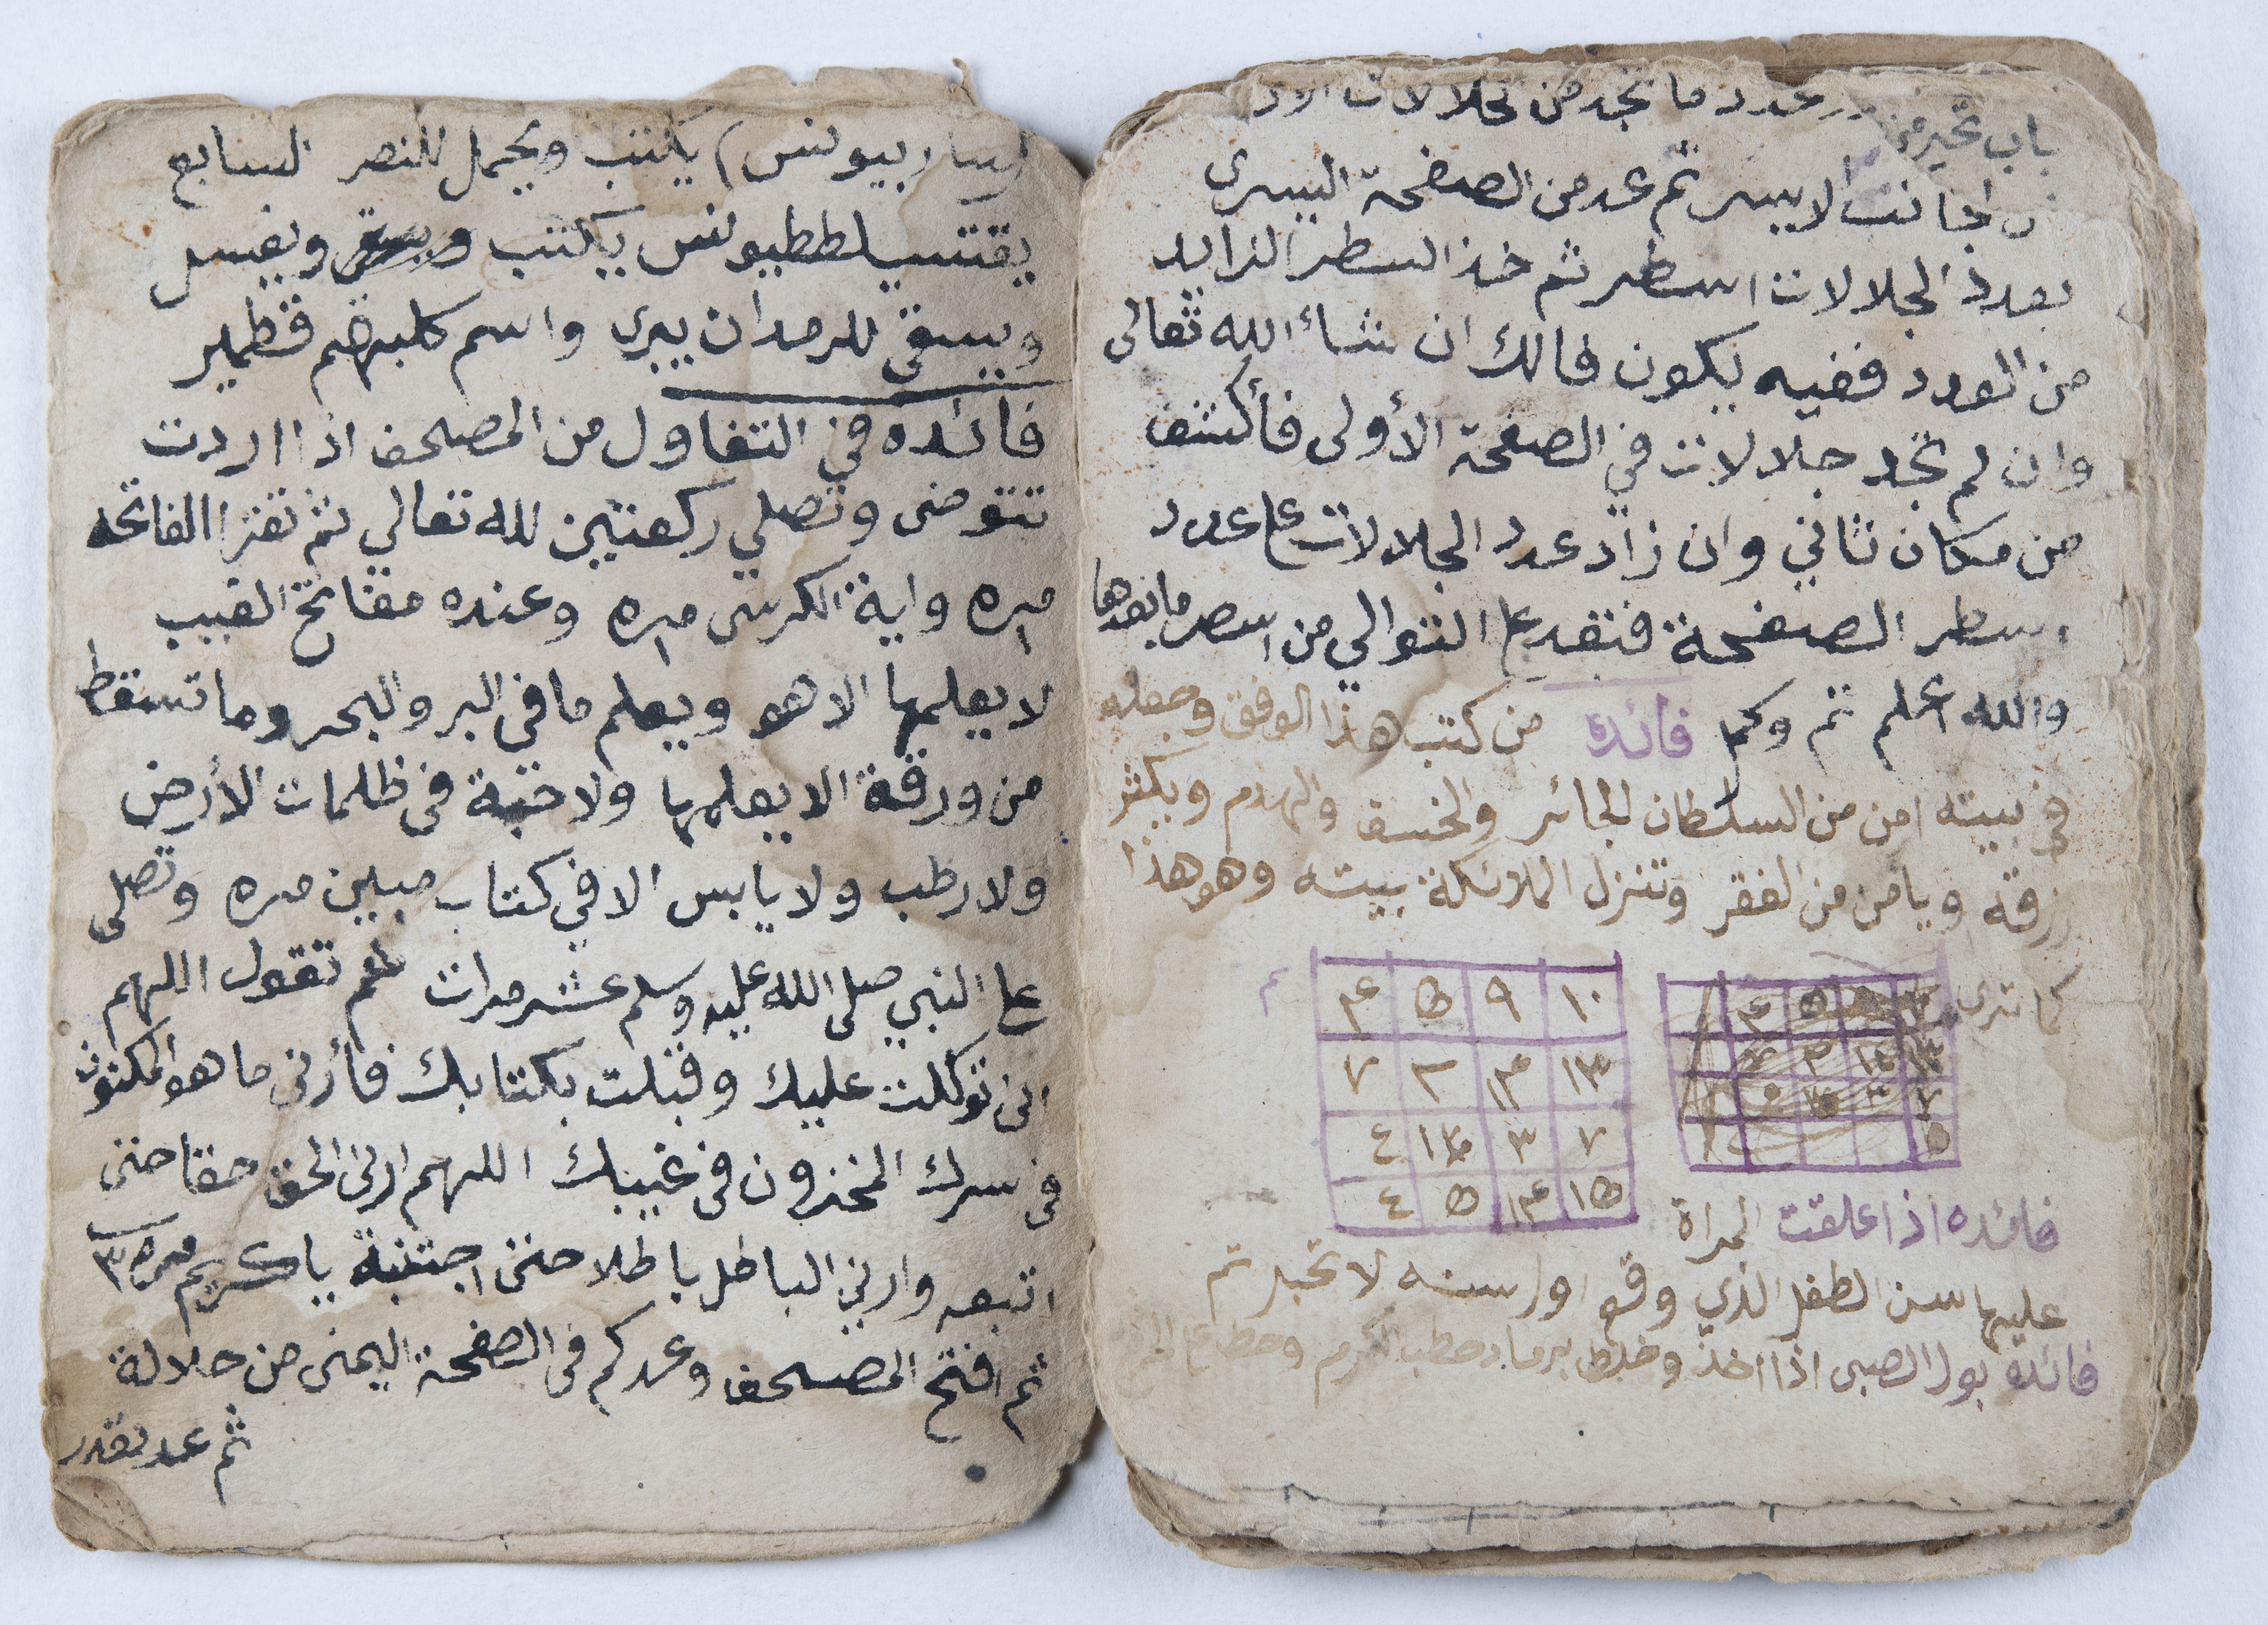 ربيونس) يكتب ويحمل للنصر السابع
يقتنسيلططيونس يكتب ويغسل
ويسقى للرمدان يبرى واسم كلبهم قطمير
فائده في التفاول من المصحف اذا اردت
تتوضى وتصلي ركعتين لله تعالي ثم تقرا الفاتحه
مره واية الكرسى مره وعنده مفاتح الغيب
لا يعلمها الا هو ويعلم ما في البر والبحر وما تسقط
من ورقة الا يعلمها ولا حبة فى ظلمات الأرض
ولا رطب ولا يابس الا في كتاب مبين مره وتصلى
على النبي صلى الله عليه وسلم عشر مرات ثم تقول اللهم
انى توكلت عليك وقبلت بكتابك فأرنى ما هو المكنون
فى سرك المخزون فى غيبك اللهم ارنى الحق حقا حتى
اتبعه وارني الباطل باطلا حتى اجتنبة يا كريم مره ٣
ثم افتح المصحف وعد كم فى الصفحة اليمنى من جلالة
ثم عد بقدر
باب عدد ما تجد من جلالات
الايسر ثم عد من الصفحة اليسرى
بعدد الجلالات اسطر ثم خذ السطر الزايد
من العدد ففيه يكون فالك ان شاء الله تعالى
وان لم تجد جلالات في الصفحة الأولى فأكشف
من مكان ثاني وان زاد عدد الجلالات على عدد
اسطر الصفحة فتعد على التوالي من اسطر ما بعدها
والله اعلم تم وكمل فائده من كتب هذا الوفق وجعله
في بيته امن من السلطان الجائر والخسف والهدم ويكثر
رزقه ويامن من الفقر وتنزل الملائكة بيته وهو هذا
كما ترى
١٠ ٩ ٥ ٤
١٣ ١٤ ٢ ٧
٧ ٣ ١٢ ٤
١٥ ١٤ ٥ ٤
فائده اذا علقت المراة
عليها سن الطفل الذي وقع اول سنه لا تحبل تم
فائده بول الصبى اذا اخذ وخلط برماد حطب الكرم وحط على